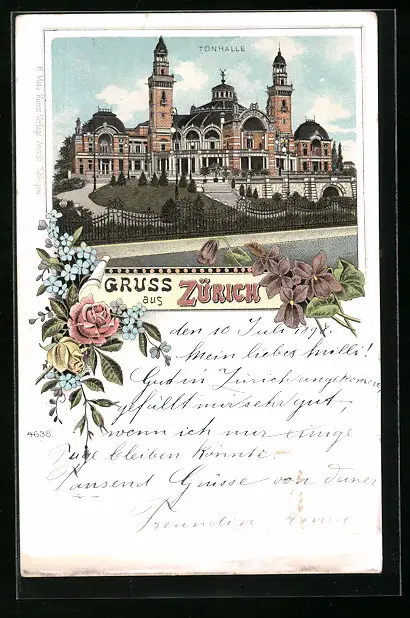 TONHALLE
GRUSS
aus ZÜRICH
den 10 Juli 1898.
Mein liebes Milli!
Gut in Zürich angekommen,
gefällt mir sehr gut,
wenn ich nur einige
Tage bleiben könnte.
4638.
Tausend Grüsse von deiner
Freundin